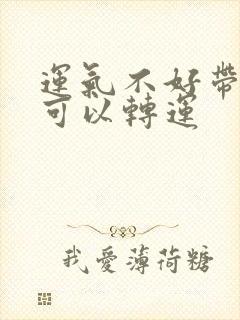 運氣不好帶
可以轉運
我愛薄荷糖